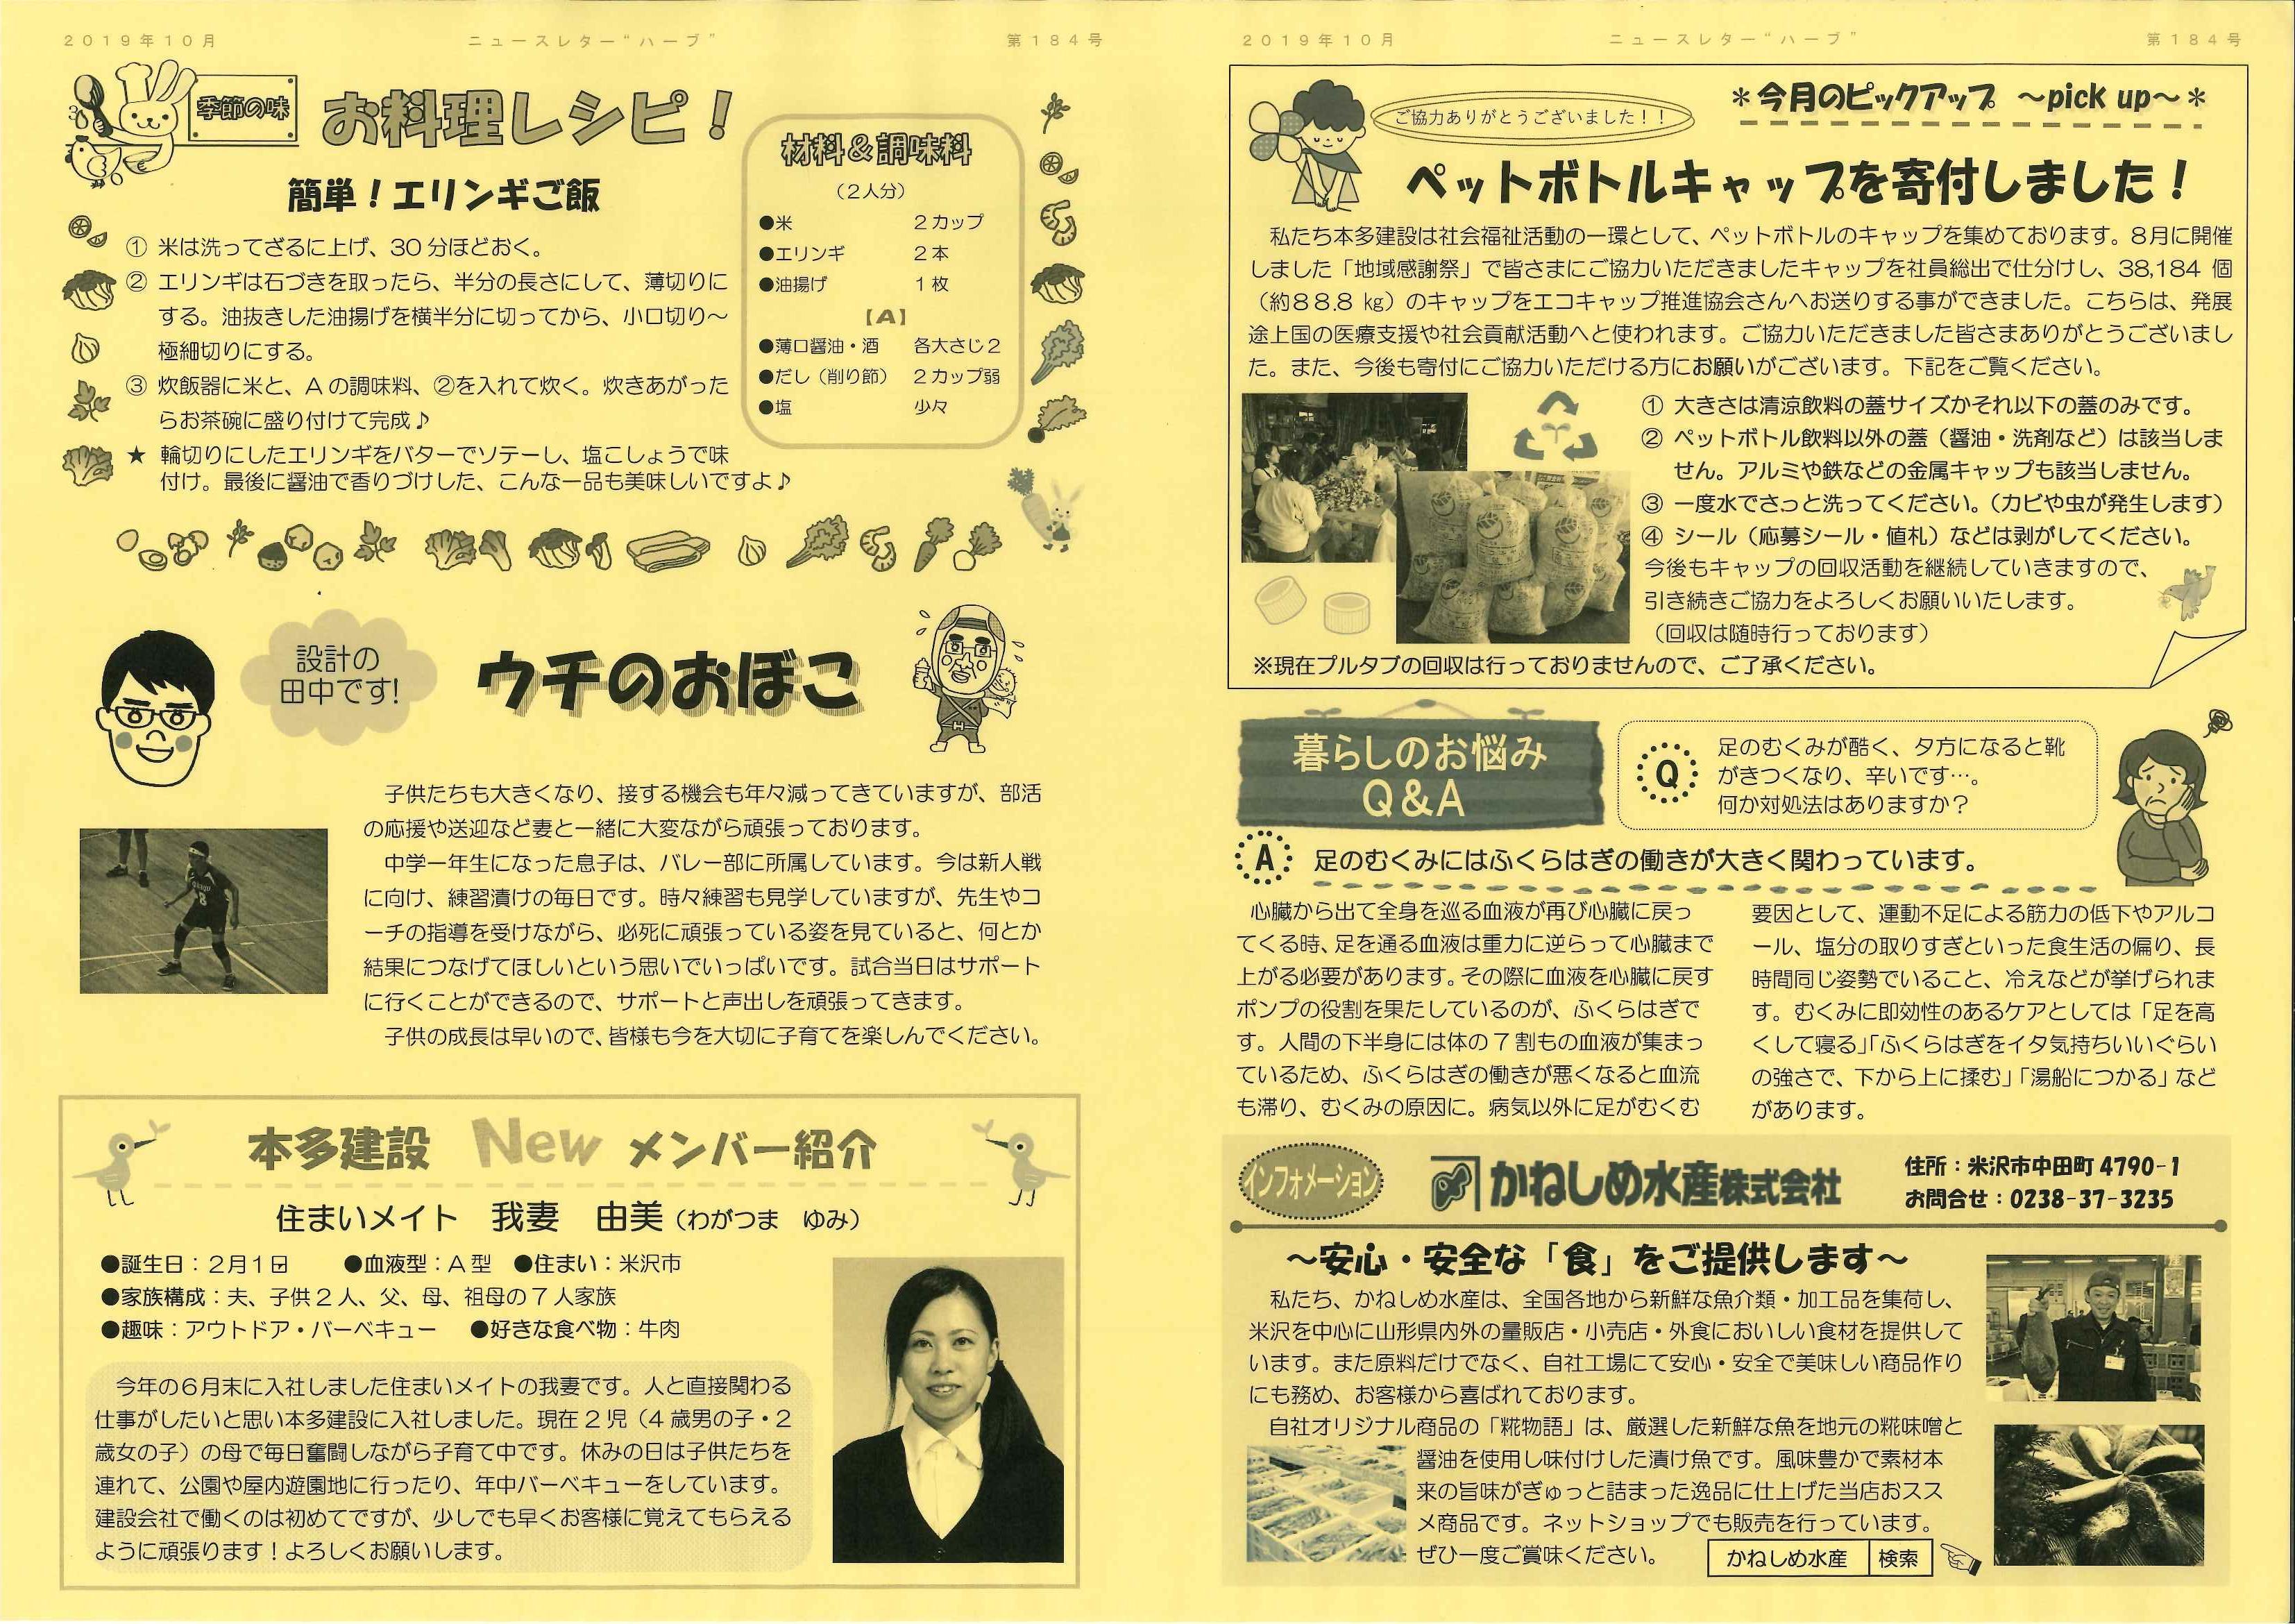 2019年10月
ニュースレター“ハーブ”
第184号
季節の味
お料理レシピ！
簡単！エリンギご飯
① 米は洗ってざるに上げ、30分ほどおく。
② エリンギは石づきを取ったら、半分の長さにして、薄切りに
する。油抜きした油揚げを横半分に切ってから、小口切り～
極細切りにする。
③ 炊飯器に米と、Aの調味料、②を入れて炊く。炊きあがった
らお茶碗に盛り付けて完成♪
★ 輪切りにしたエリンギをバターでソテーし、塩こしょうで味
付け。最後に醤油で香りづけした、こんな一品も美味しいですよ♪
材料＆調味料
（2人分）
●米 2カップ
●エリンギ 2本
●油揚げ 1枚
【A】
●薄口醤油・酒 各大さじ2
●だし（削り節） 2カップ弱
●塩 少々
設計の
田中です!
ウチのおぼこ
子供たちも大きくなり、接する機会も年々減ってきていますが、部活
の応援や送迎など妻と一緒に大変ながら頑張っております。
中学一年生になった息子は、バレー部に所属しています。今は新人戦
に向け、練習漬けの毎日です。時々練習も見学していますが、先生やコ
ーチの指導を受けながら、必死に頑張っている姿を見ていると、何とか
結果につなげてほしいという思いでいっぱいです。試合当日はサポート
に行くことができるので、サポートと声出しを頑張ってきます。
子供の成長は早いので、皆様も今を大切に子育てを楽しんでください。
本多建設 New メンバー紹介
住まいメイト 我妻 由美（わがつま ゆみ）
●誕生日：2月1日 ●血液型：A型 ●住まい：米沢市
●家族構成：夫、子供2人、父、母、祖母の7人家族
●趣味：アウトドア・バーベキュー ●好きな食べ物：牛肉
今年の6月末に入社しました住まいメイトの我妻です。人と直接関わる
仕事がしたいと思い本多建設に入社しました。現在2児（4歳男の子・2
歳女の子）の母で毎日奮闘しながら子育て中です。休みの日は子供たちを
連れて、公園や屋内遊園地に行ったり、年中バーベキューをしています。
建設会社で働くのは初めてですが、少しでも早くお客様に覚えてもらえる
ように頑張ります！よろしくお願いします。
2019年10月
ニュースレター“ハーブ”
第184号
ご協力ありがとうございました！！
＊今月のピックアップ ～pick up～＊
ペットボトルキャップを寄付しました！
私たち本多建設は社会福祉活動の一環として、ペットボトルのキャップを集めております。8月に開催
しました「地域感謝祭」で皆さまにご協力いただきましたキャップを社員総出で仕分けし、38,184 個
（約88.8 kg）のキャップをエコキャップ推進協会さんへお送りする事ができました。こちらは、発展
途上国の医療支援や社会貢献活動へと使われます。ご協力いただきました皆さまありがとうございまし
た。また、今後も寄付にご協力いただける方にお願いがございます。下記をご覧ください。
① 大きさは清涼飲料の蓋サイズかそれ以下の蓋のみです。
② ペットボトル飲料以外の蓋（醤油・洗剤など）は該当しま
せん。アルミや鉄などの金属キャップも該当しません。
③ 一度水でさっと洗ってください。（カビや虫が発生します）
④ シール（応募シール・値札）などは剥がしてください。
今後もキャップの回収活動を継続していきますので、
引き続きご協力をよろしくお願いいたします。
（回収は随時行っております）
※現在プルタブの回収は行っておりませんので、ご了承ください。
暮らしのお悩み
Q&A
Q
足のむくみが酷く、夕方になると靴
がきつくなり、辛いです…。
何か対処法はありますか？
A
足のむくみにはふくらはぎの働きが大きく関わっています。
心臓から出て全身を巡る血液が再び心臓に戻っ
てくる時、足を通る血液は重力に逆らって心臓まで
上がる必要があります。その際に血液を心臓に戻す
ポンプの役割を果たしているのが、ふくらはぎで
す。人間の下半身には体の7割もの血液が集まっ
ているため、ふくらはぎの働きが悪くなると血流
も滞り、むくみの原因に。病気以外に足がむくむ
要因として、運動不足による筋力の低下やアルコ
ール、塩分の取りすぎといった食生活の偏り、長
時間同じ姿勢でいること、冷えなどが挙げられま
す。むくみに即効性のあるケアとしては「足を高
くして寝る」「ふくらはぎをイタ気持ちいいぐらい
の強さで、下から上に揉む」「湯船につかる」など
があります。
インフォメーション
かねしめ水産株式会社
住所：米沢市中田町4790-1
お問合せ：0238-37-3235
～安心・安全な「食」をご提供します～
私たち、かねしめ水産は、全国各地から新鮮な魚介類・加工品を集荷し、
米沢を中心に山形県内外の量販店・小売店・外食においしい食材を提供して
います。また原料だけでなく、自社工場にて安心・安全で美味しい商品作り
にも務め、お客様から喜ばれております。
自社オリジナル商品の「糀物語」は、厳選した新鮮な魚を地元の糀味噌と
醤油を使用し味付けした漬け魚です。風味豊かで素材本
来の旨味がぎゅっと詰まった逸品に仕上げた当店おスス
メ商品です。ネットショップでも販売を行っています。
ぜひ一度ご賞味ください。
かねしめ水産 検索